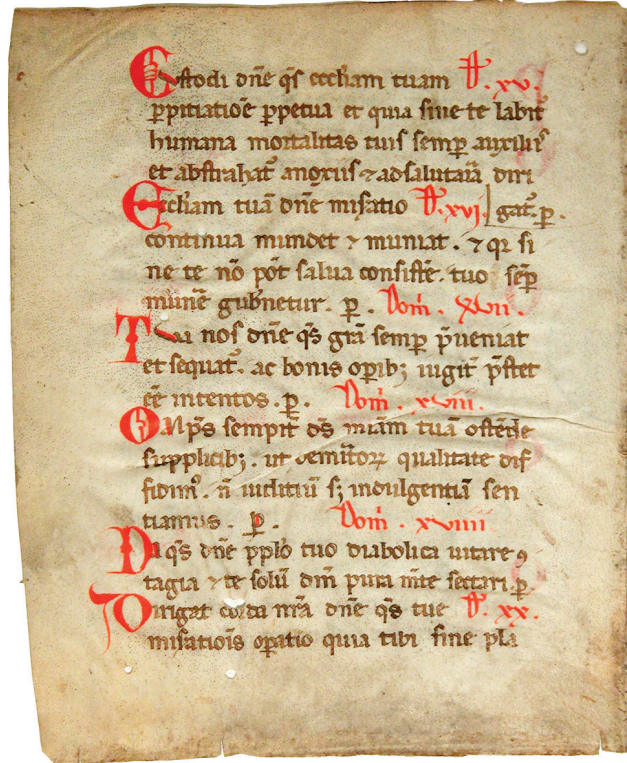 Custodi dn̄e q̄s eccłiam tuam Ꝟ. xv.
ꝓpitiatiōe ꝑpetua et quia sine te labit᷑
humana mortalitas tuis semꝑ auxiliis
et abstrahat᷑ anoxiis ⁊ adsalutaīa diri
Eccłiam tuā dn̄e miſatio Ꝟ. xvi. gat᷑. ꝑ.
continua mundet ⁊ muniat. ⁊ qr si
ne te nō pōt salua consistē. tuo sēꝑ
munē gub̄netur. ꝑ. Dom̄. xvii.
Tua nos dn̄e q̄s grā semꝑ p̄ueniat
et sequat᷑. ac bonis oꝑibꝫ iugit᷑ p̄stet
eē intentos. ꝑ. Dom̄. xviii.
Om̄ps sempit᷑ ds̄ miām tuā ostēde
supplicibꝫ. ut demitoꝝ qualitate dif
fidim᷒. n̄ iuditiū sꝫ indulgentiā sen
tiamus. ꝑ. Dom̄. xviiii
Da q̄s dn̄e pp̄lo tuo diabolica uitare ꝯ
tagia ⁊ te solū dm̄ pura m̄te sectari. ꝑ.
Dirigat corda nr̄a dn̄e q̄s tue Ꝟ. xx.
miſatiōis oꝑatio quia tibi sine pla